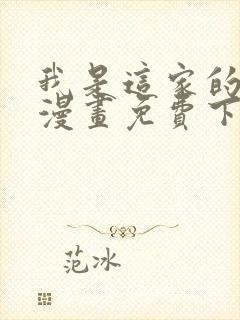 我是這家的
漫畫免費下
范冰